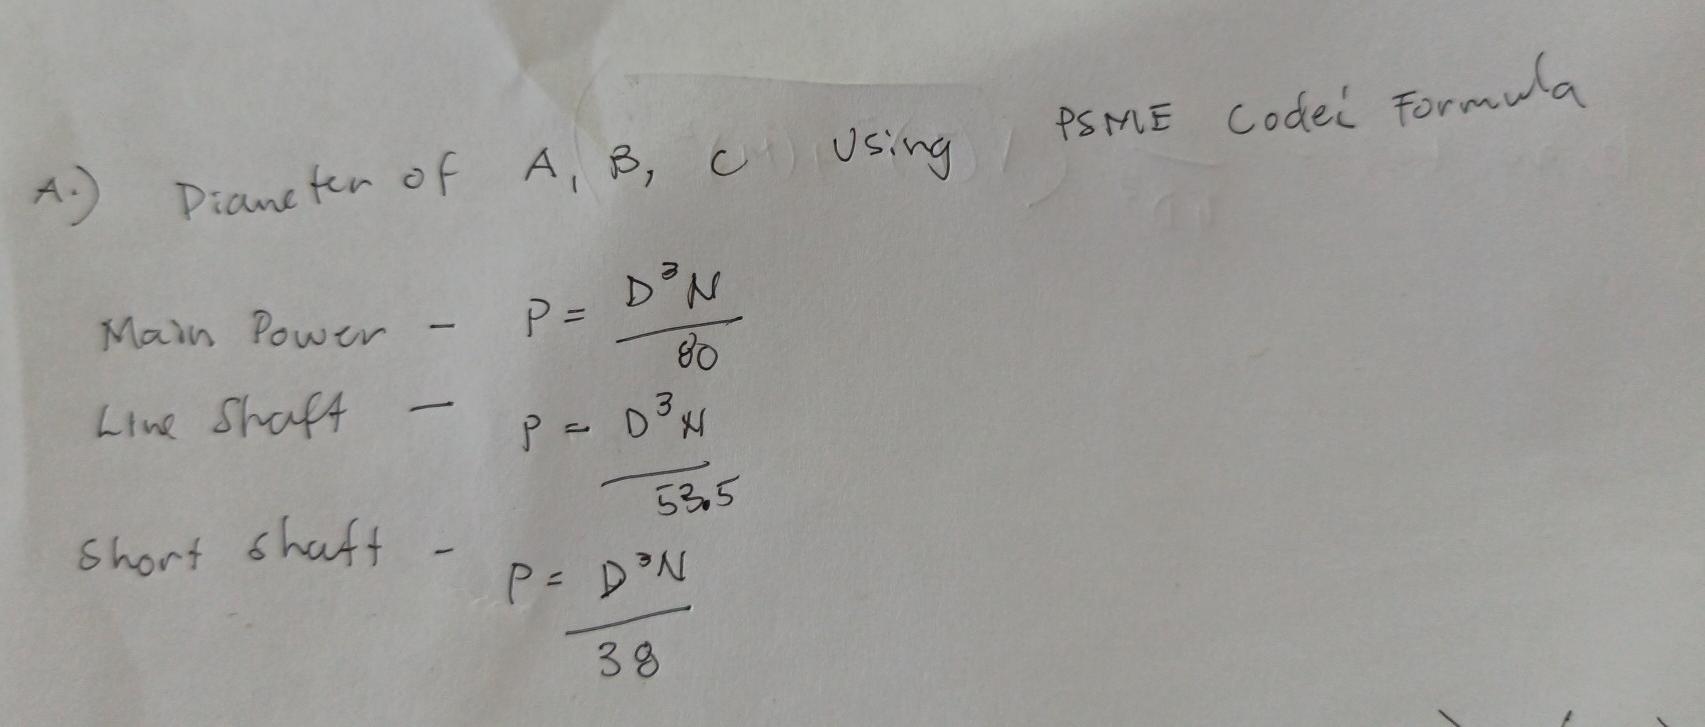 A.) Diameter of A, B, C Using PSME Code: Formula
Main Power - P = D³N
80
Line Shaft - P = D³N
53.5
Short shaft - P = D³N
38